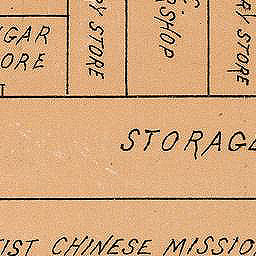 IGAR
ORE
Y STORE
SHOP
RY STORE
STORAGE
IST CHINESE MISSIO